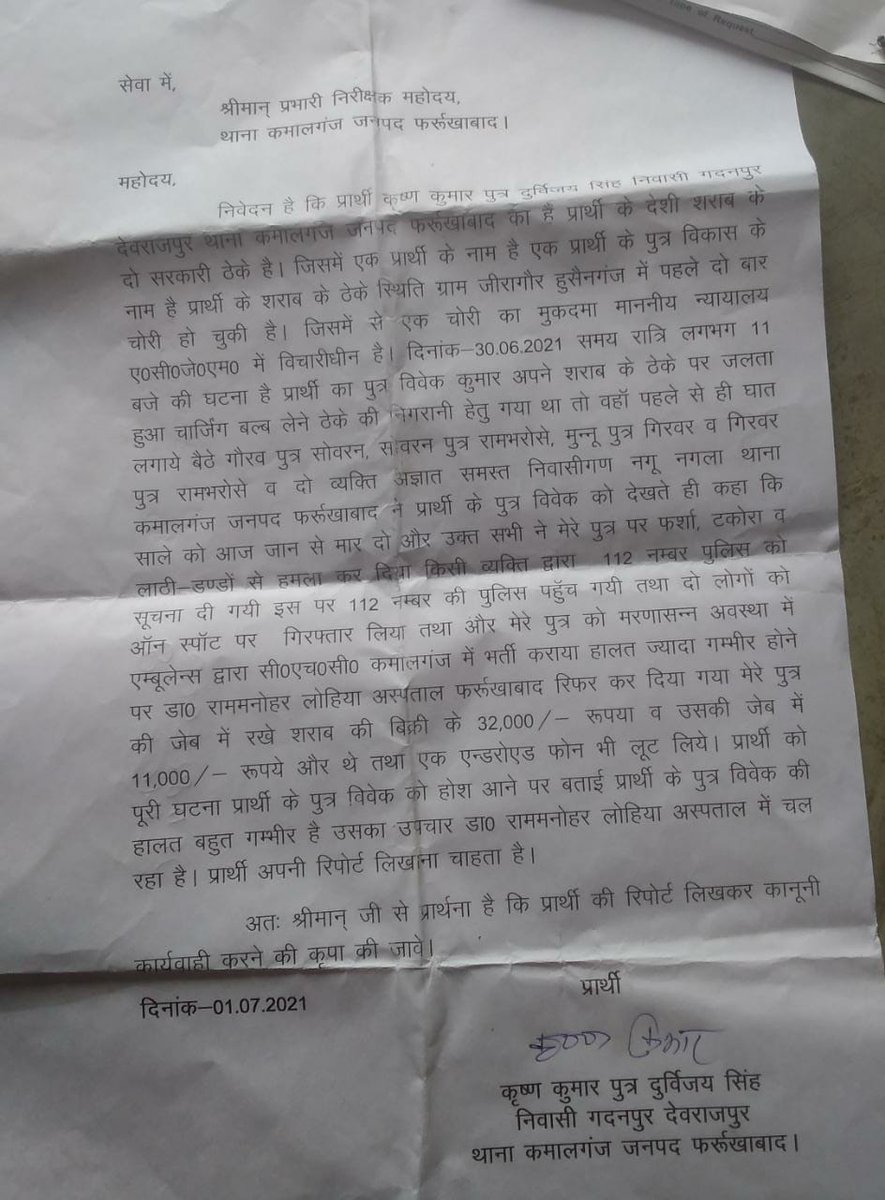 Time of Request
सेवा में,
श्रीमान् प्रभारी निरीक्षक महोदय,
थाना कमालगंज जनपद फर्रूखाबाद।
महोदय,
निवेदन है कि प्रार्थी कृष्ण कुमार पुत्र दुर्विजय सिंह निवासी गदनपुर
देवराजपुर थाना कमालगंज जनपद फर्रूखाबाद का है प्रार्थी के देशी शराब के
दो सरकारी ठेके है। जिसमें एक प्रार्थी के नाम है एक प्रार्थी के पुत्र विकास के
नाम है प्रार्थी के शराब के ठेके स्थिति ग्राम जीरागौर हुसैनगंज में पहले दो बार
चोरी हो चुकी है। जिसमें से एक चोरी का मुकदमा माननीय न्यायालय
ए०सी०जे०एम० में विचारीधीन है। दिनांक–30.06.2021 समय रात्रि लगभग 11
बजे की घटना है प्रार्थी का पुत्र विवेक कुमार अपने शराब के ठेके पर जलता
हुआ चार्जिंग बल्ब लेने ठेके की निगरानी हेतु गया था तो वहॉ पहले से ही घात
लगाये बैठे गौरव पुत्र सोवरन, सोवरन पुत्र रामभरोसे, मुन्नू पुत्र गिरवर व गिरवर
पुत्र रामभरोसे व दो व्यक्ति अज्ञात समस्त निवासीगण नगू नगला थाना
कमालगंज जनपद फर्रूखाबाद ने प्रार्थी के पुत्र विवेक को देखते ही कहा कि
साले को आज जान से मार दो और उक्त सभी ने मेरे पुत्र पर फर्शा, टकोरा व
लाठी–डण्डों से हमला कर दिया किसी व्यक्ति द्वारा 112 नम्बर पुलिस को
सूचना दी गयी इस पर 112 नम्बर की पुलिस पहुॅच गयी तथा दो लोगों को
ऑन स्पॉट पर गिरफ्तार लिया तथा और मेरे पुत्र को मरणासन्न अवस्था में
एम्बूलेन्स द्वारा सी०एच०सी० कमालगंज में भर्ती कराया हालत ज्यादा गम्भीर होने
पर डा० राममनोहर लोहिया अस्पताल फर्रूखाबाद रिफर कर दिया गया मेरे पुत्र
की जेब में रखे शराब की बिक्री के 32,000/– रूपया व उसकी जेब में
11,000/– रूपये और थे तथा एक एन्डरोएड फोन भी लूट लिये। प्रार्थी को
पूरी घटना प्रार्थी के पुत्र विवेक को होश आने पर बताई प्रार्थी के पुत्र विवेक की
हालत बहुत गम्भीर है उसका उपचार डा० राममनोहर लोहिया अस्पताल में चल
रहा है। प्रार्थी अपनी रिपोर्ट लिखाना चाहता है।
अतः श्रीमान् जी से प्रार्थना है कि प्रार्थी की रिपोर्ट लिखकर कानूनी
कार्यवाही करने की कृपा की जावे।
दिनांक–01.07.2021
प्रार्थी
कृष्ण कुमार
कृष्ण कुमार पुत्र दुर्विजय सिंह
निवासी गदनपुर देवराजपुर
थाना कमालगंज जनपद फर्रूखाबाद।